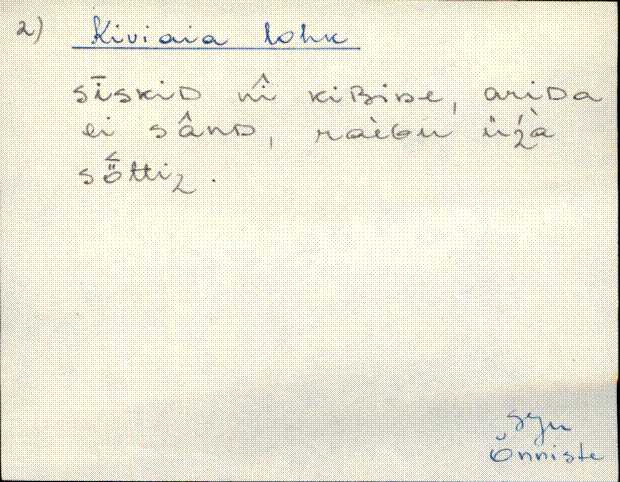 2) Kiviaia lohk
sīskiD nî̄ kiBiDe, ariDa
ei sânD, raèGu üʒ̀à
sȫttiz.
Syn
Õnniste